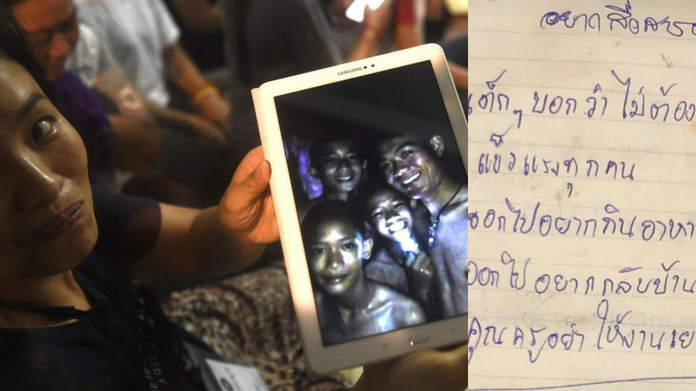 SAMSUNG
อยากสื่อสาร
เด็กๆ บอกว่า ไม่ต้อง
แข็งแรงทุกคน
ออกไปอยากกินอาหา
ออกไปอยากกลับบ้าน
คุณครูอย่าให้งานเย